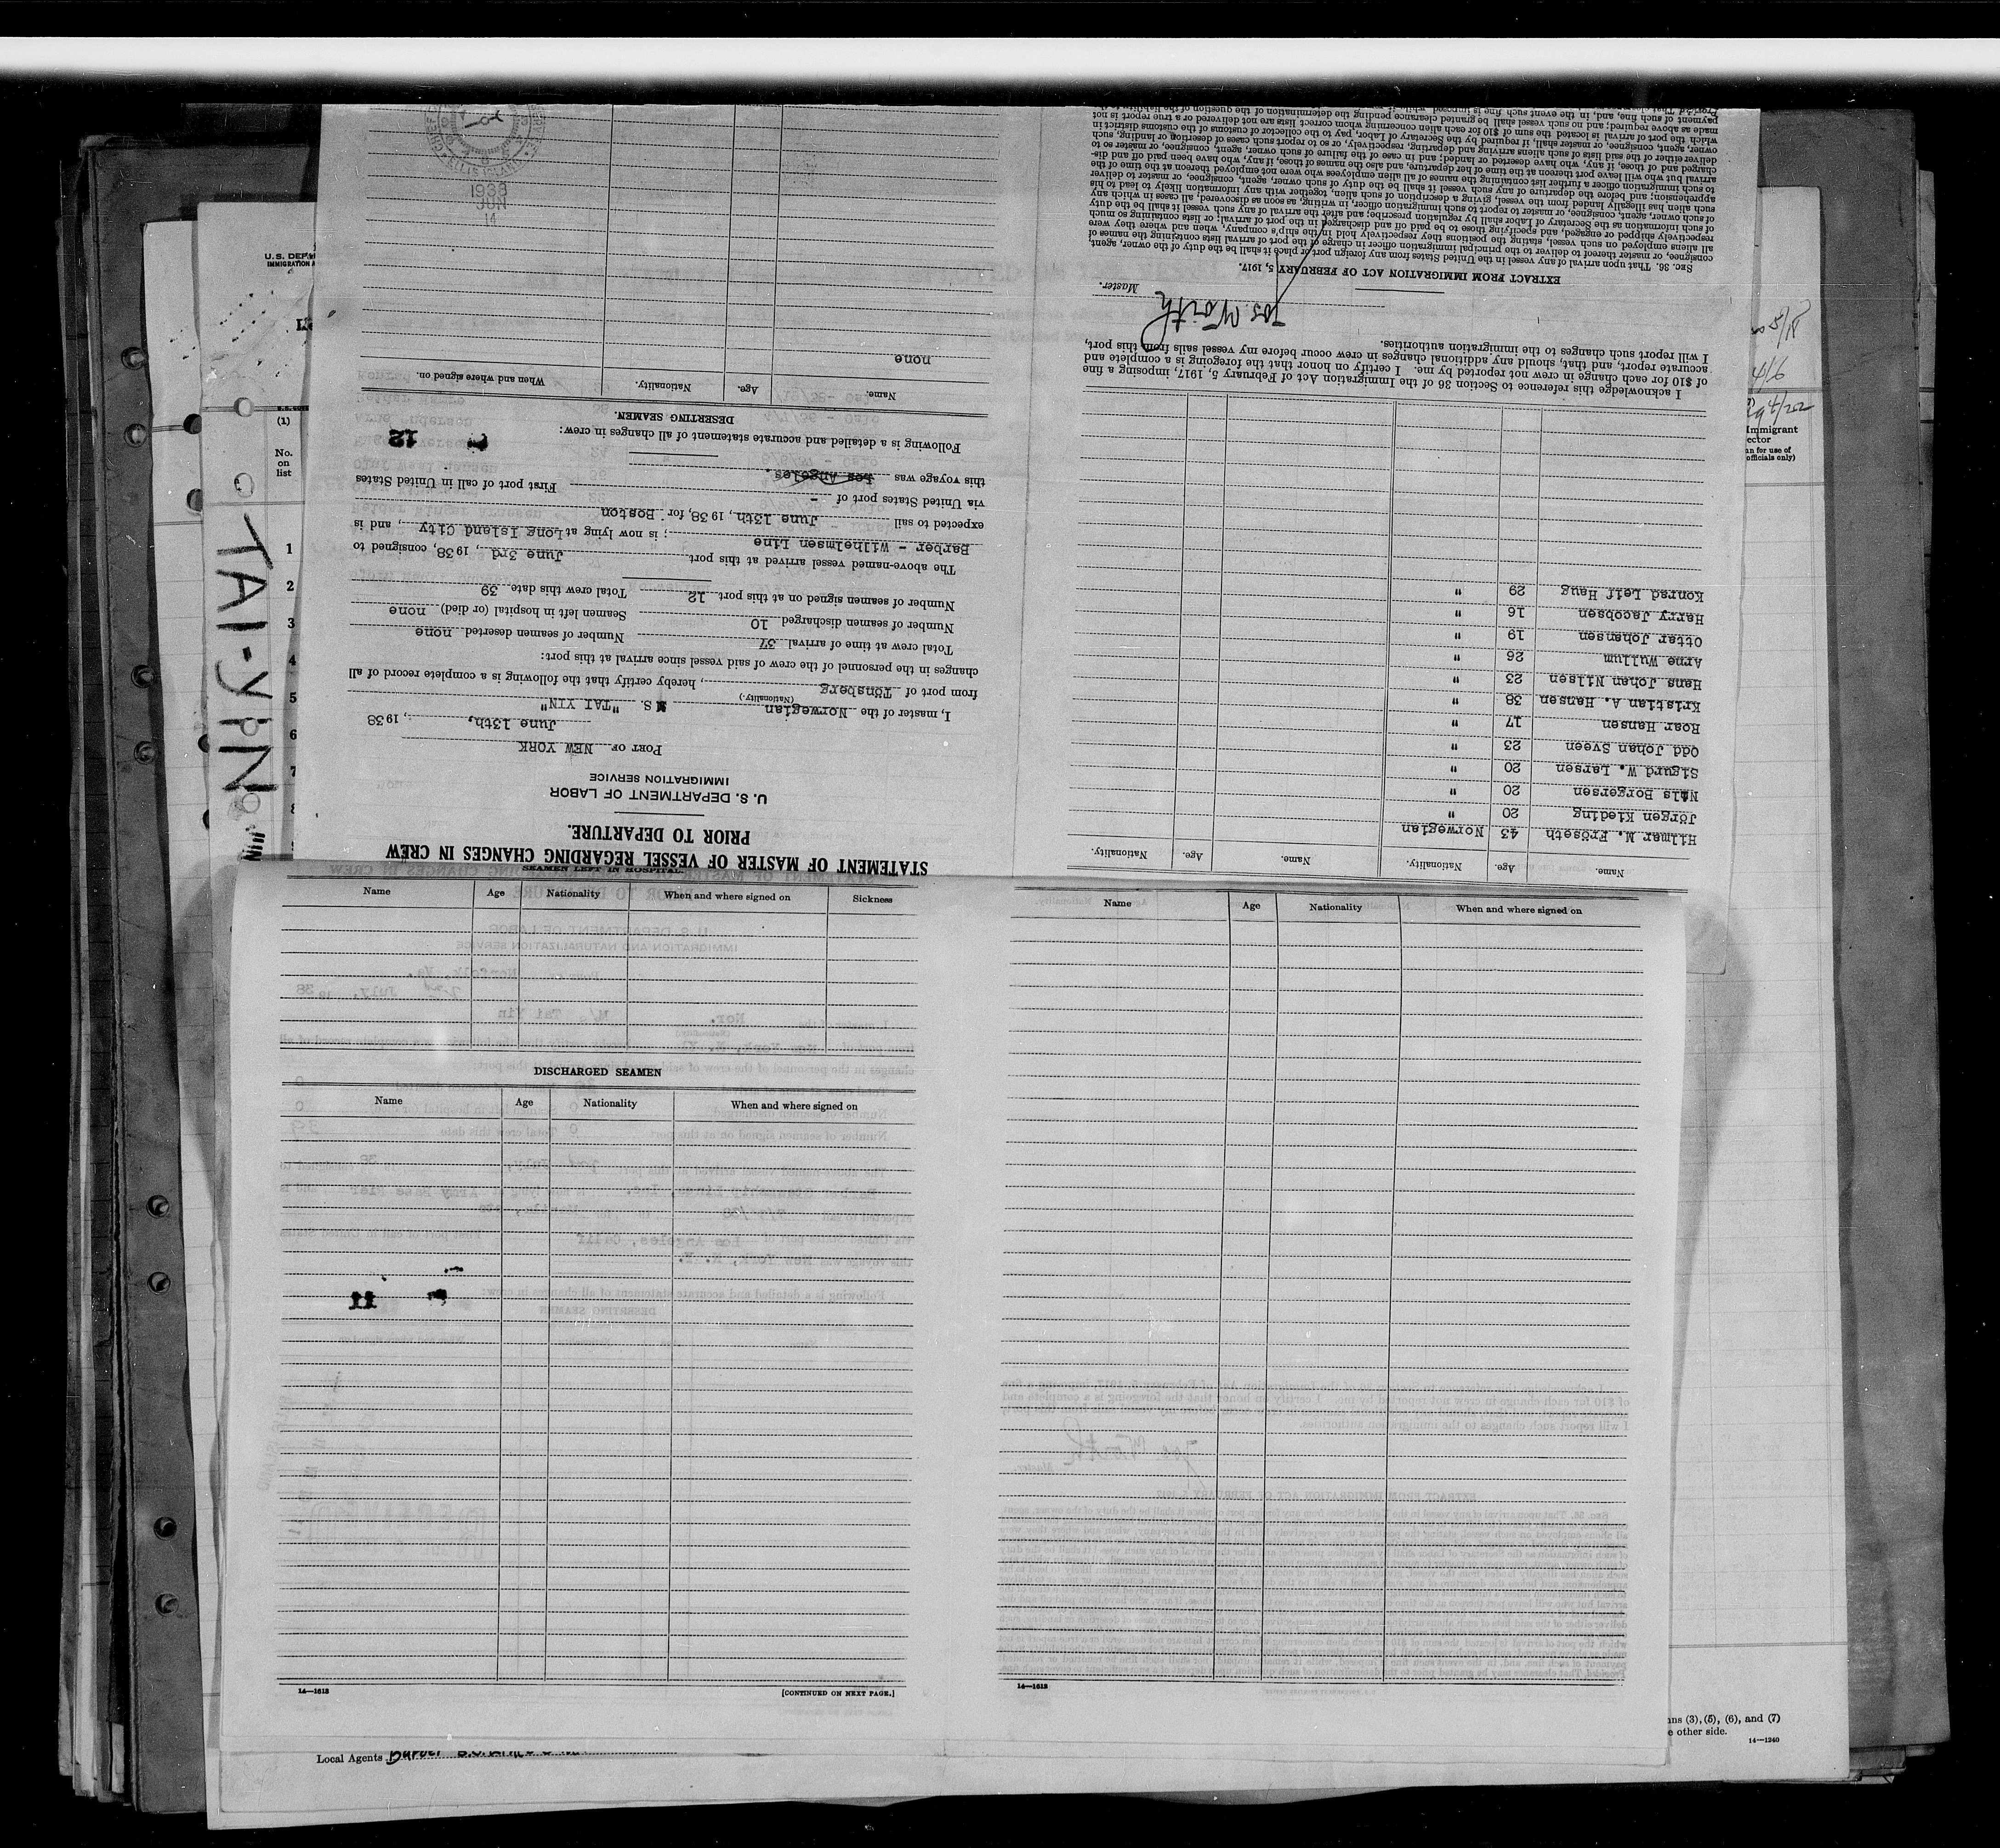 STATEMENT OF MASTER OF VESSEL REGARDING CHANGES IN CREW
PRIOR TO DEPARTURE.
U. S. DEPARTMENT OF LABOR
IMMIGRATION SERVICE
PORT OF NEW YORK
June 13th, , 1938
I, master of the Norwegian M.S. "TAI YIN"
(Nationality.)
from port of Tönsberg , hereby certify that the following is a complete record of all
changes in the personnel of the crew of said vessel since arrival at this port:
Total crew at time of arrival 37 Number of seamen deserted none
Number of seamen discharged 10 Seamen left in hospital (or died) none
Number of seamen signed on at this port 12 Total crew this date 39
The above-named vessel arrived at this port June 3rd , 1938, consigned to
Barber - Wilhelmsen Line ; is now lying at Long Island City , and is
expected to sail June 13th , 1938, for Boston
via United States port of - First port of call in United States
this voyage was Los Angeles.
Following is a detailed and accurate statement of all changes in crew:
12
DESERTING SEAMEN.
Name. Age. Nationality. When and where signed on.
none
14
JUN
1938
ELLIS ISLAND
Name. Age. Nationality. Name. Age. Nationality.
Hilmar M. Fröseth 43 Norwegian
Jörgen Kieding 20 "
Nils Borgersen 20 "
Sigurd W. Larsen 20 "
Odd Johan Sveen 23 "
Roar Hansen 17 "
Kristian A. Hansen 38 "
Hans Johan Nilsen 23 "
Arne Wullum 26 "
Ottar Johansen 19 "
Harry Jacobsen 16 "
Konrad Leif Haug 29 "
I acknowledge this reference to Section 36 of the Immigration Act of February 5, 1917, imposing a fine
of $10 for each change in crew not reported by me. I certify on honor that the foregoing is a complete and
accurate report, and that, should any additional changes in crew occur before my vessel sails from this port,
I will report such changes to the immigration authorities.
Jos. Worth
Master.
EXTRACT FROM IMMIGRATION ACT OF FEBRUARY 5, 1917.
Sec. 36. That upon arrival of any vessel in the United States from any foreign port or place it shall be the duty of the owner, agent,
consignee, or master thereof to deliver to the principal immigration officer in charge of the port of arrival lists containing the names of
all aliens employed on such vessel, stating the positions they respectively hold in the ship's company, when and where they were
respectively shipped or engaged, and specifying those to be paid off and discharged in the port of arrival; or lists containing so much
of such information as the Secretary of Labor shall by regulation prescribe; and after the arrival of any such vessel it shall be the duty
of such owner, agent, consignee, or master to report to such immigration officer, in writing, as soon as discovered, all cases in which any
such alien has illegally landed from the vessel, giving a description of such alien, together with any information likely to lead to his
apprehension; and before the departure of any such vessel it shall be the duty of such owner, agent, consignee, or master to deliver
to such immigration officer a further list containing the names of all alien employees who were not employed thereon at the time of the
arrival but who will leave port thereon at the time of her departure, and also the names of those, if any, who have been paid off and dis-
charged and of those, if any, who have deserted or landed; and in case of the failure of such owner, agent, consignee, or master so to
deliver either of the said lists of such aliens arriving and departing, respectively, or so to report such cases of desertion or landing, such
owner, agent, consignee, or master, shall, if required by the Secretary of Labor, pay to the collector of customs of the customs district in
which the port of arrival is located the sum of $10 for each alien concerning whom correct lists are not delivered or a true report is not
made as above required; and no such vessel shall be granted clearance pending the determination of the question of the liability to the
payment of such fine, and, in the event such fine is imposed, while it
U. S. DEP
IMMIGRATION
(1)
No.
on
list
1
2
3
4
5
6
7
8
TAI-YIN
5/18
4/6
Immigrant
ector
officials only)
SEAMEN LEFT IN HOSPITAL.
Name Age Nationality When and where signed on Sickness
DISCHARGED SEAMEN
Name Age Nationality When and where signed on
11
14—1618 [CONTINUED ON NEXT PAGE.]
Name Age Nationality When and where signed on
14—1618
Local Agents Barber
ns (3), (5), (6), and (7)
e other side.
14—1240